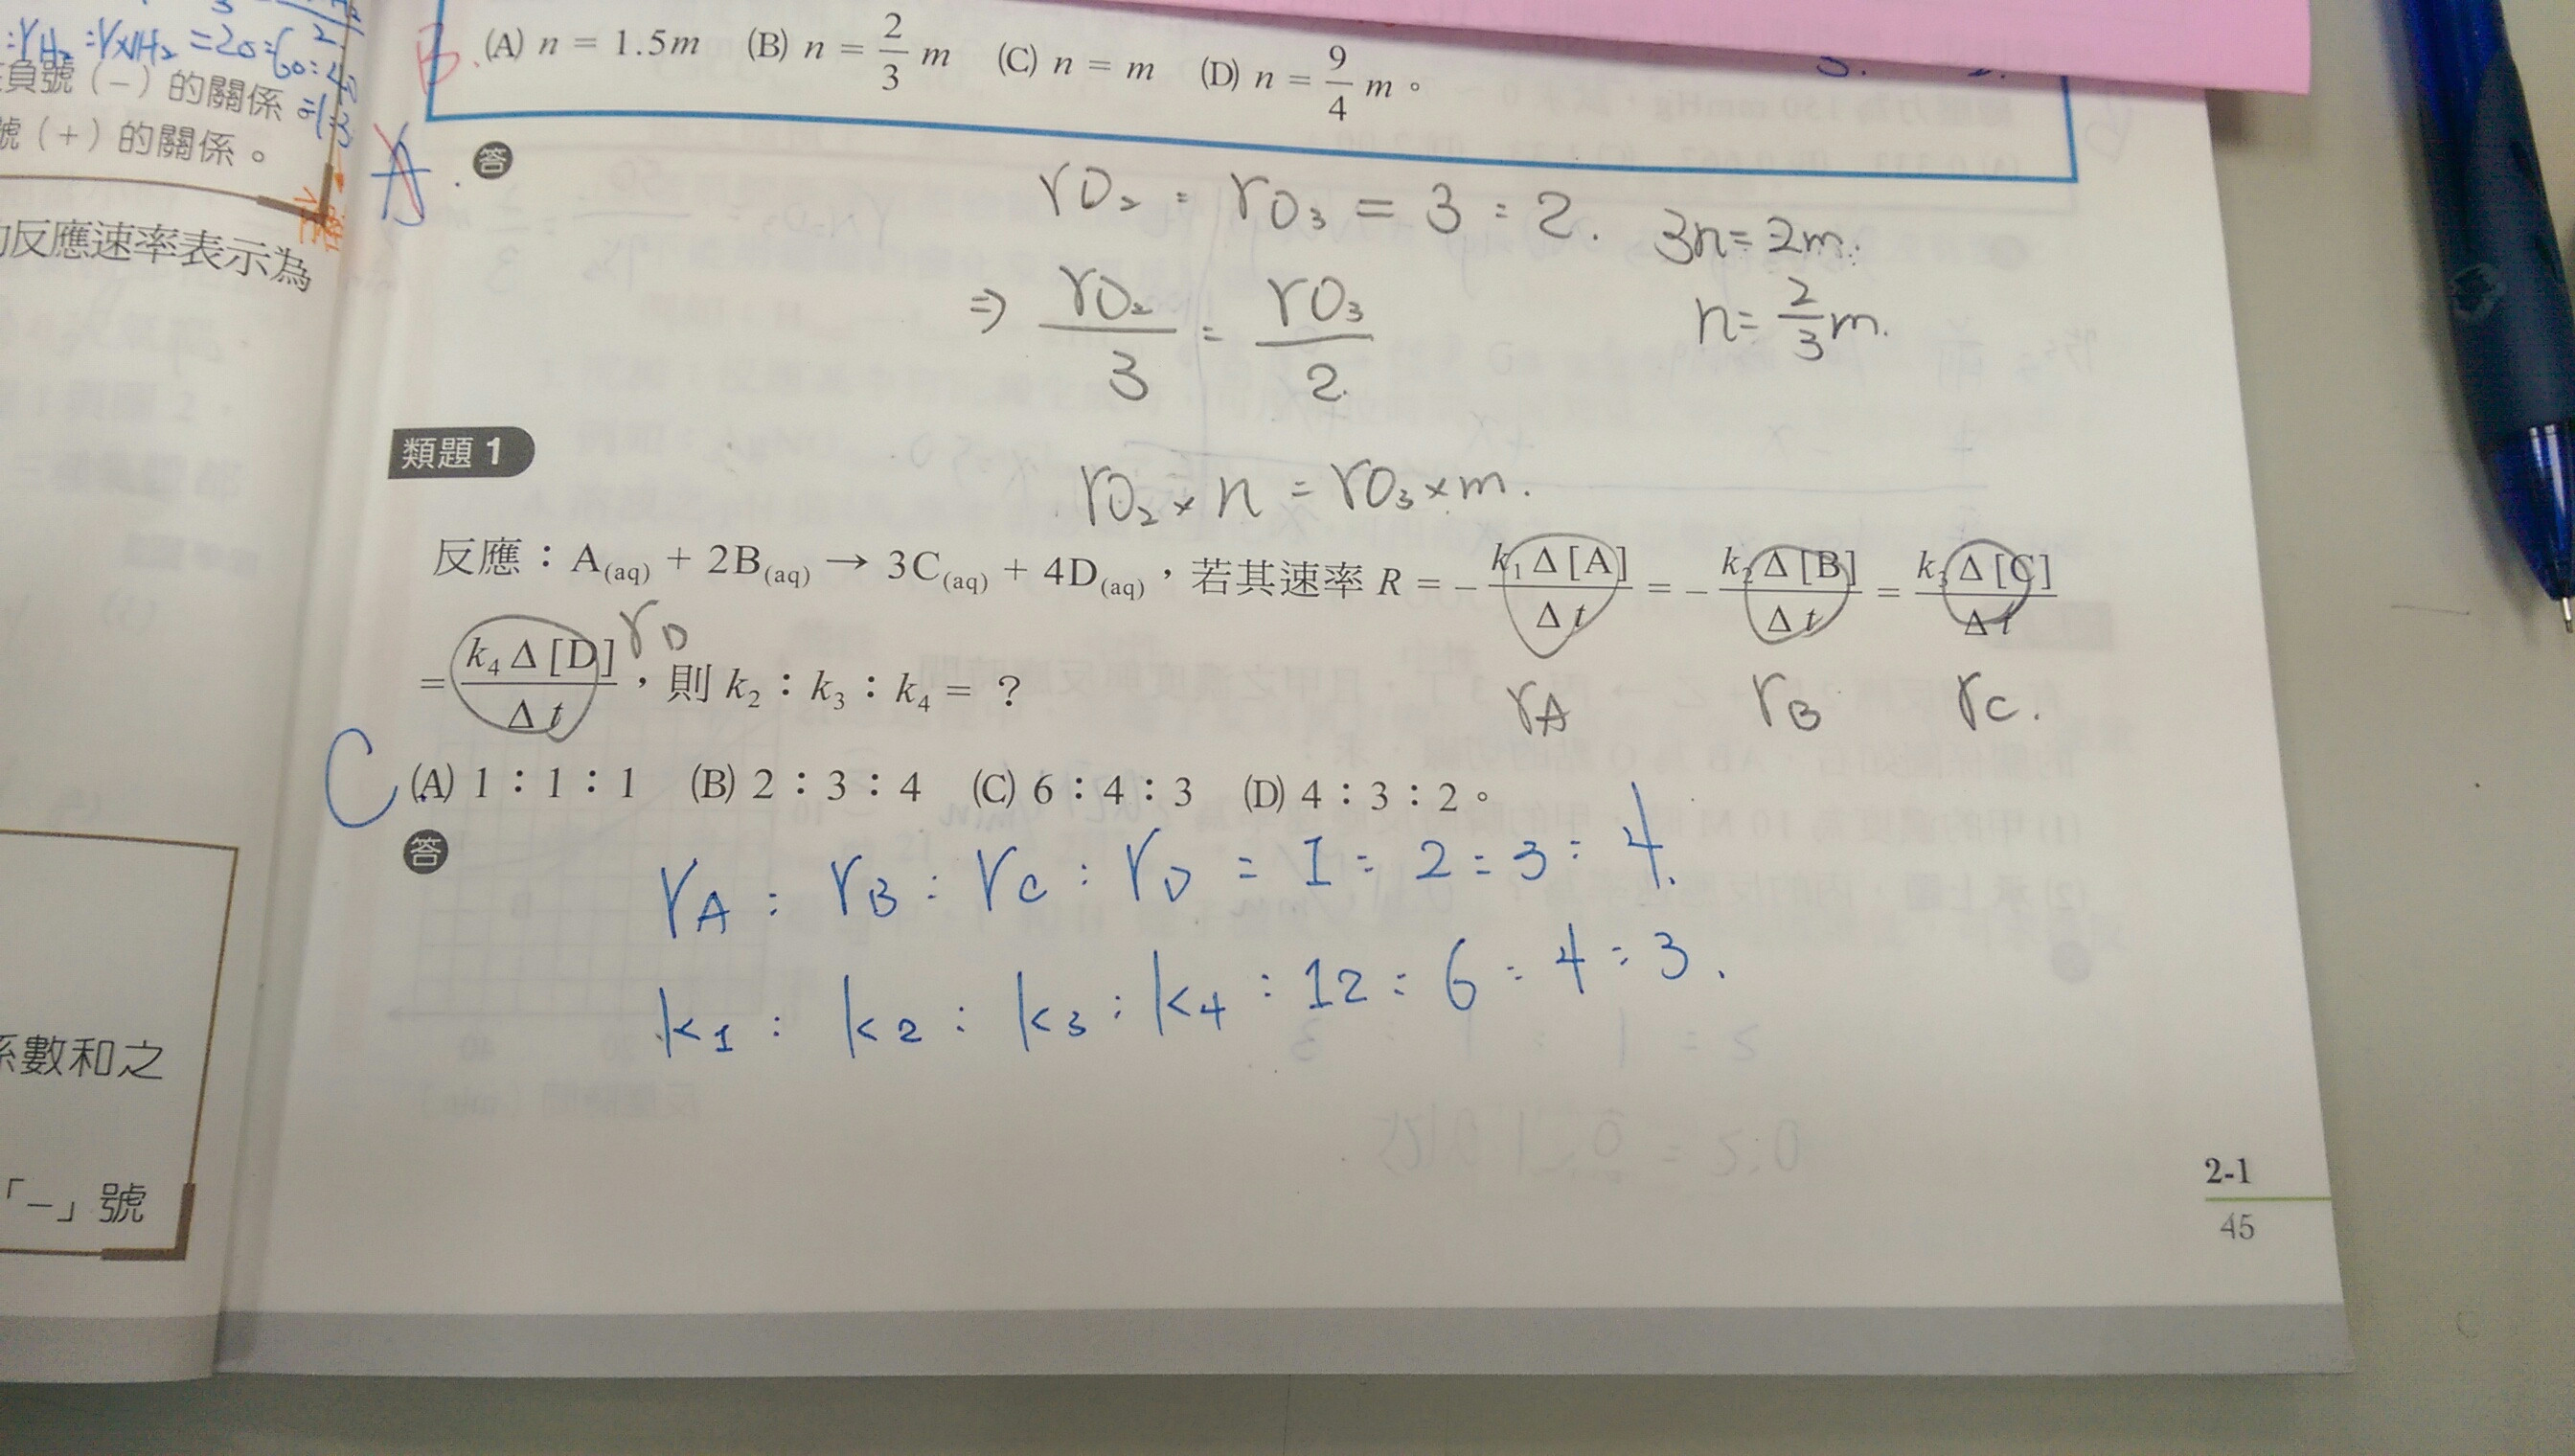 :γH₂:γNH₃ =20:60:40
負號(−)的關係 =1:3
號(+)的關係。
的反應速率表示為
係數和之
「−」號
B. (A) n = 1.5m (B) n = 2/3 m (C) n = m (D) n = 9/4 m。
A. 答
γO₂ : γO₃ = 3 : 2.
3n = 2m.
⇒ γO₂/3 = γO₃/2
n = 2/3 m.
類題 1
γO₂ × n = γO₃ × m.
反應:A(aq) + 2B(aq) → 3C(aq) + 4D(aq),若其速率 R = − k₁Δ[A]/Δt = − k₂Δ[B]/Δt = k₃Δ[C]/Δt
= k₄Δ[D]/Δt,則 k₂:k₃:k₄ = ?
γD
γA γB γC.
C (A) 1:1:1 (B) 2:3:4 (C) 6:4:3 (D) 4:3:2。
答
γA : γB : γC : γD = 1 : 2 : 3 : 4.
k₁ : k₂ : k₃ : k₄ : 12 : 6 : 4 : 3.
2-1
45